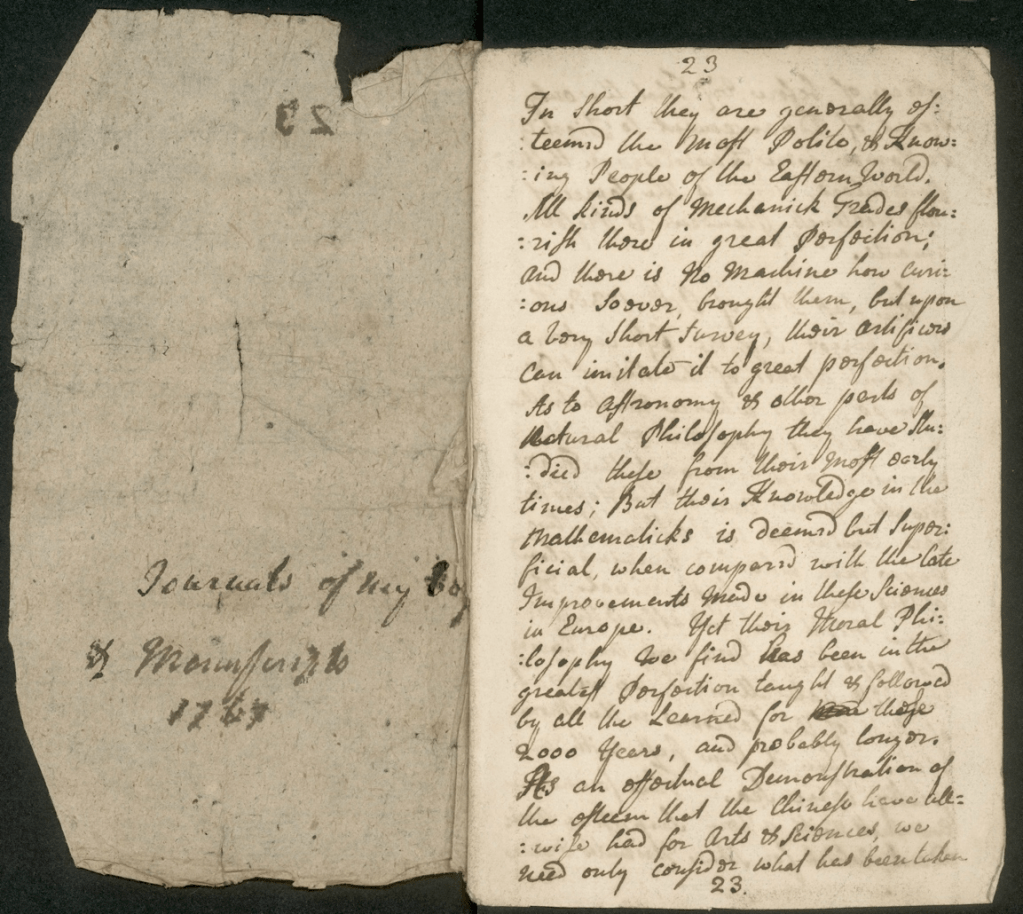 23
Journals of my
& Manuscripts
1767
23
In Short they are generally es:
:teemd the most Polite, & Know:
:ing People of the Eastern World.
All kinds of Mechanick Trades flou:
:rish there in great Perfection;
and there is No Machine how curi:
:ous Soever, brought them, but upon
a very Short Survey, their artificers
can imitate it to great perfection.
As to Astronomy & other parts of
Natural Philosophy they have Stu:
:died these from their most early
times; But their Knowledge in the
Mathematicks is deemed but Super:
ficial, when compared with the late
Improvements made in these Sciences
in Europe. Yet their Moral Phi:
:losophy we find has been in the
greatest Perfection taught & followed
by all the Learned for these
2000 Years, and probably longer.
As an effectual Demonstration of
the esteem that the Chinese have like=
:wise had for Arts & Sciences, we
need only consider what has been taken
23.